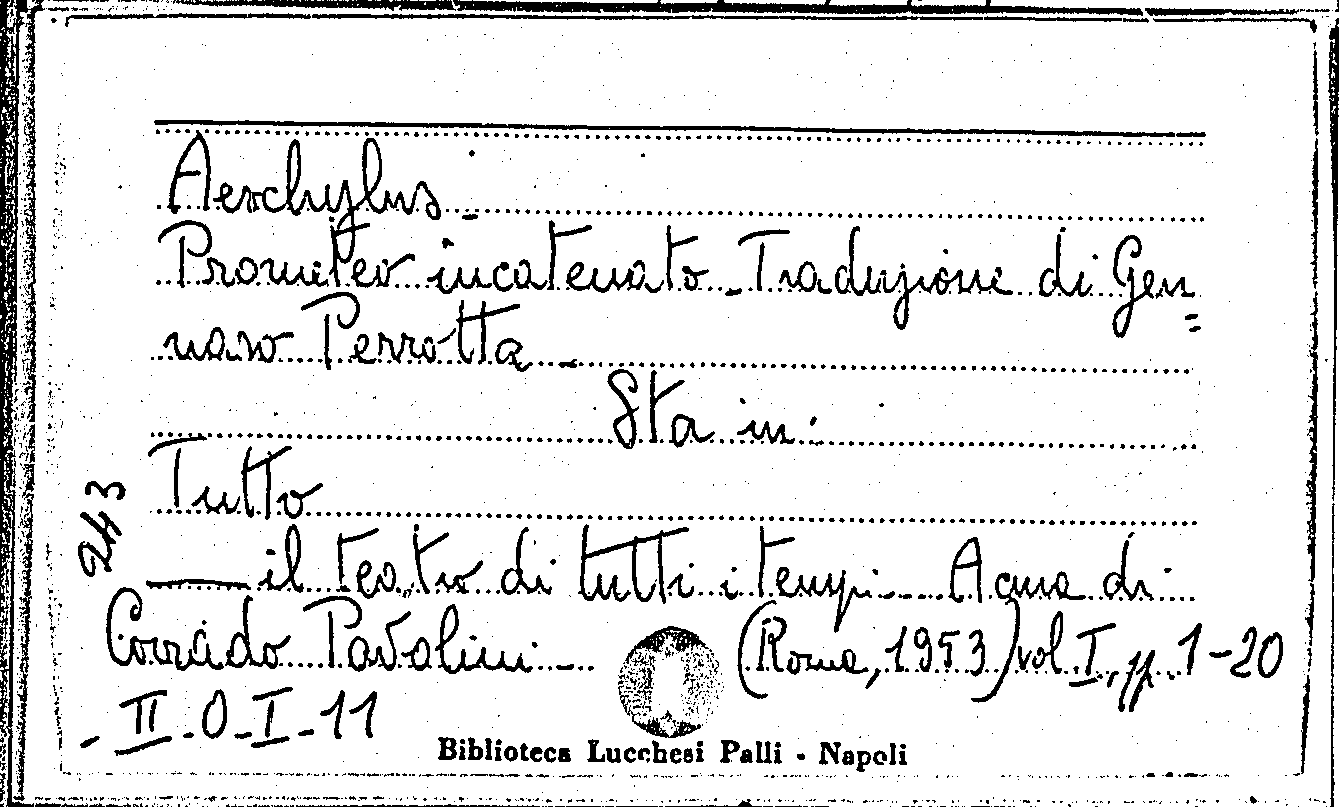 Aeschylus -
Prometeo incatenato - Traduzione di Gen
naro Perrotta -
Sta in:
Tutto
243
—— il teatro di tutti i tempi. A cura di
Corrado Pavolini - (Roma, 1953) vol. I, pp. 1-20
- II - O - I - 11
Biblioteca Lucchesi Palli - Napoli